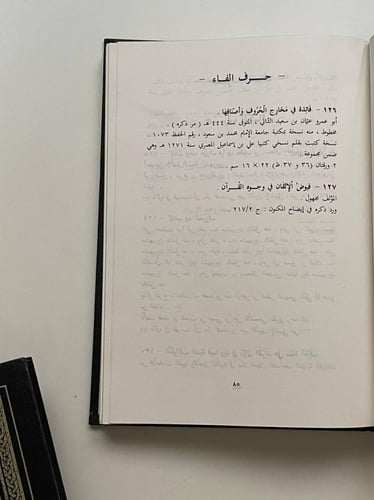 - حرف الفاء -
١٢٦ - فَائِدة في مَخَارِج الحُرُوف وَأَصنَافِها .
أبو عمرو عثمان بن سعيد الدَّاني ، المتوفى سنة ٤٤٤ هـ ( مر ذكره ) .
مخطوط ، منه نسخة بمكتبة جامعة الإمام محمد بن سعود ، رقم الحفظ ١٠٧٣ ،
نسخة كتبت بقلم نسخي كتبها علي بن إسماعيل المصري سنة ١٢٧١ هـ وهي
ضمن مجموعة .
٢ ورقتان ( ٣٦ و ٣٧ ط ) ٢٢ × ١٦ سم .
١٢٧ - فُيوضُ الإتْقَان في وجوه القُرآن .
المؤلف مجهول .
ورد ذكره في إيضاح المكنون : ج ٢١٧/٢ .
٨٥